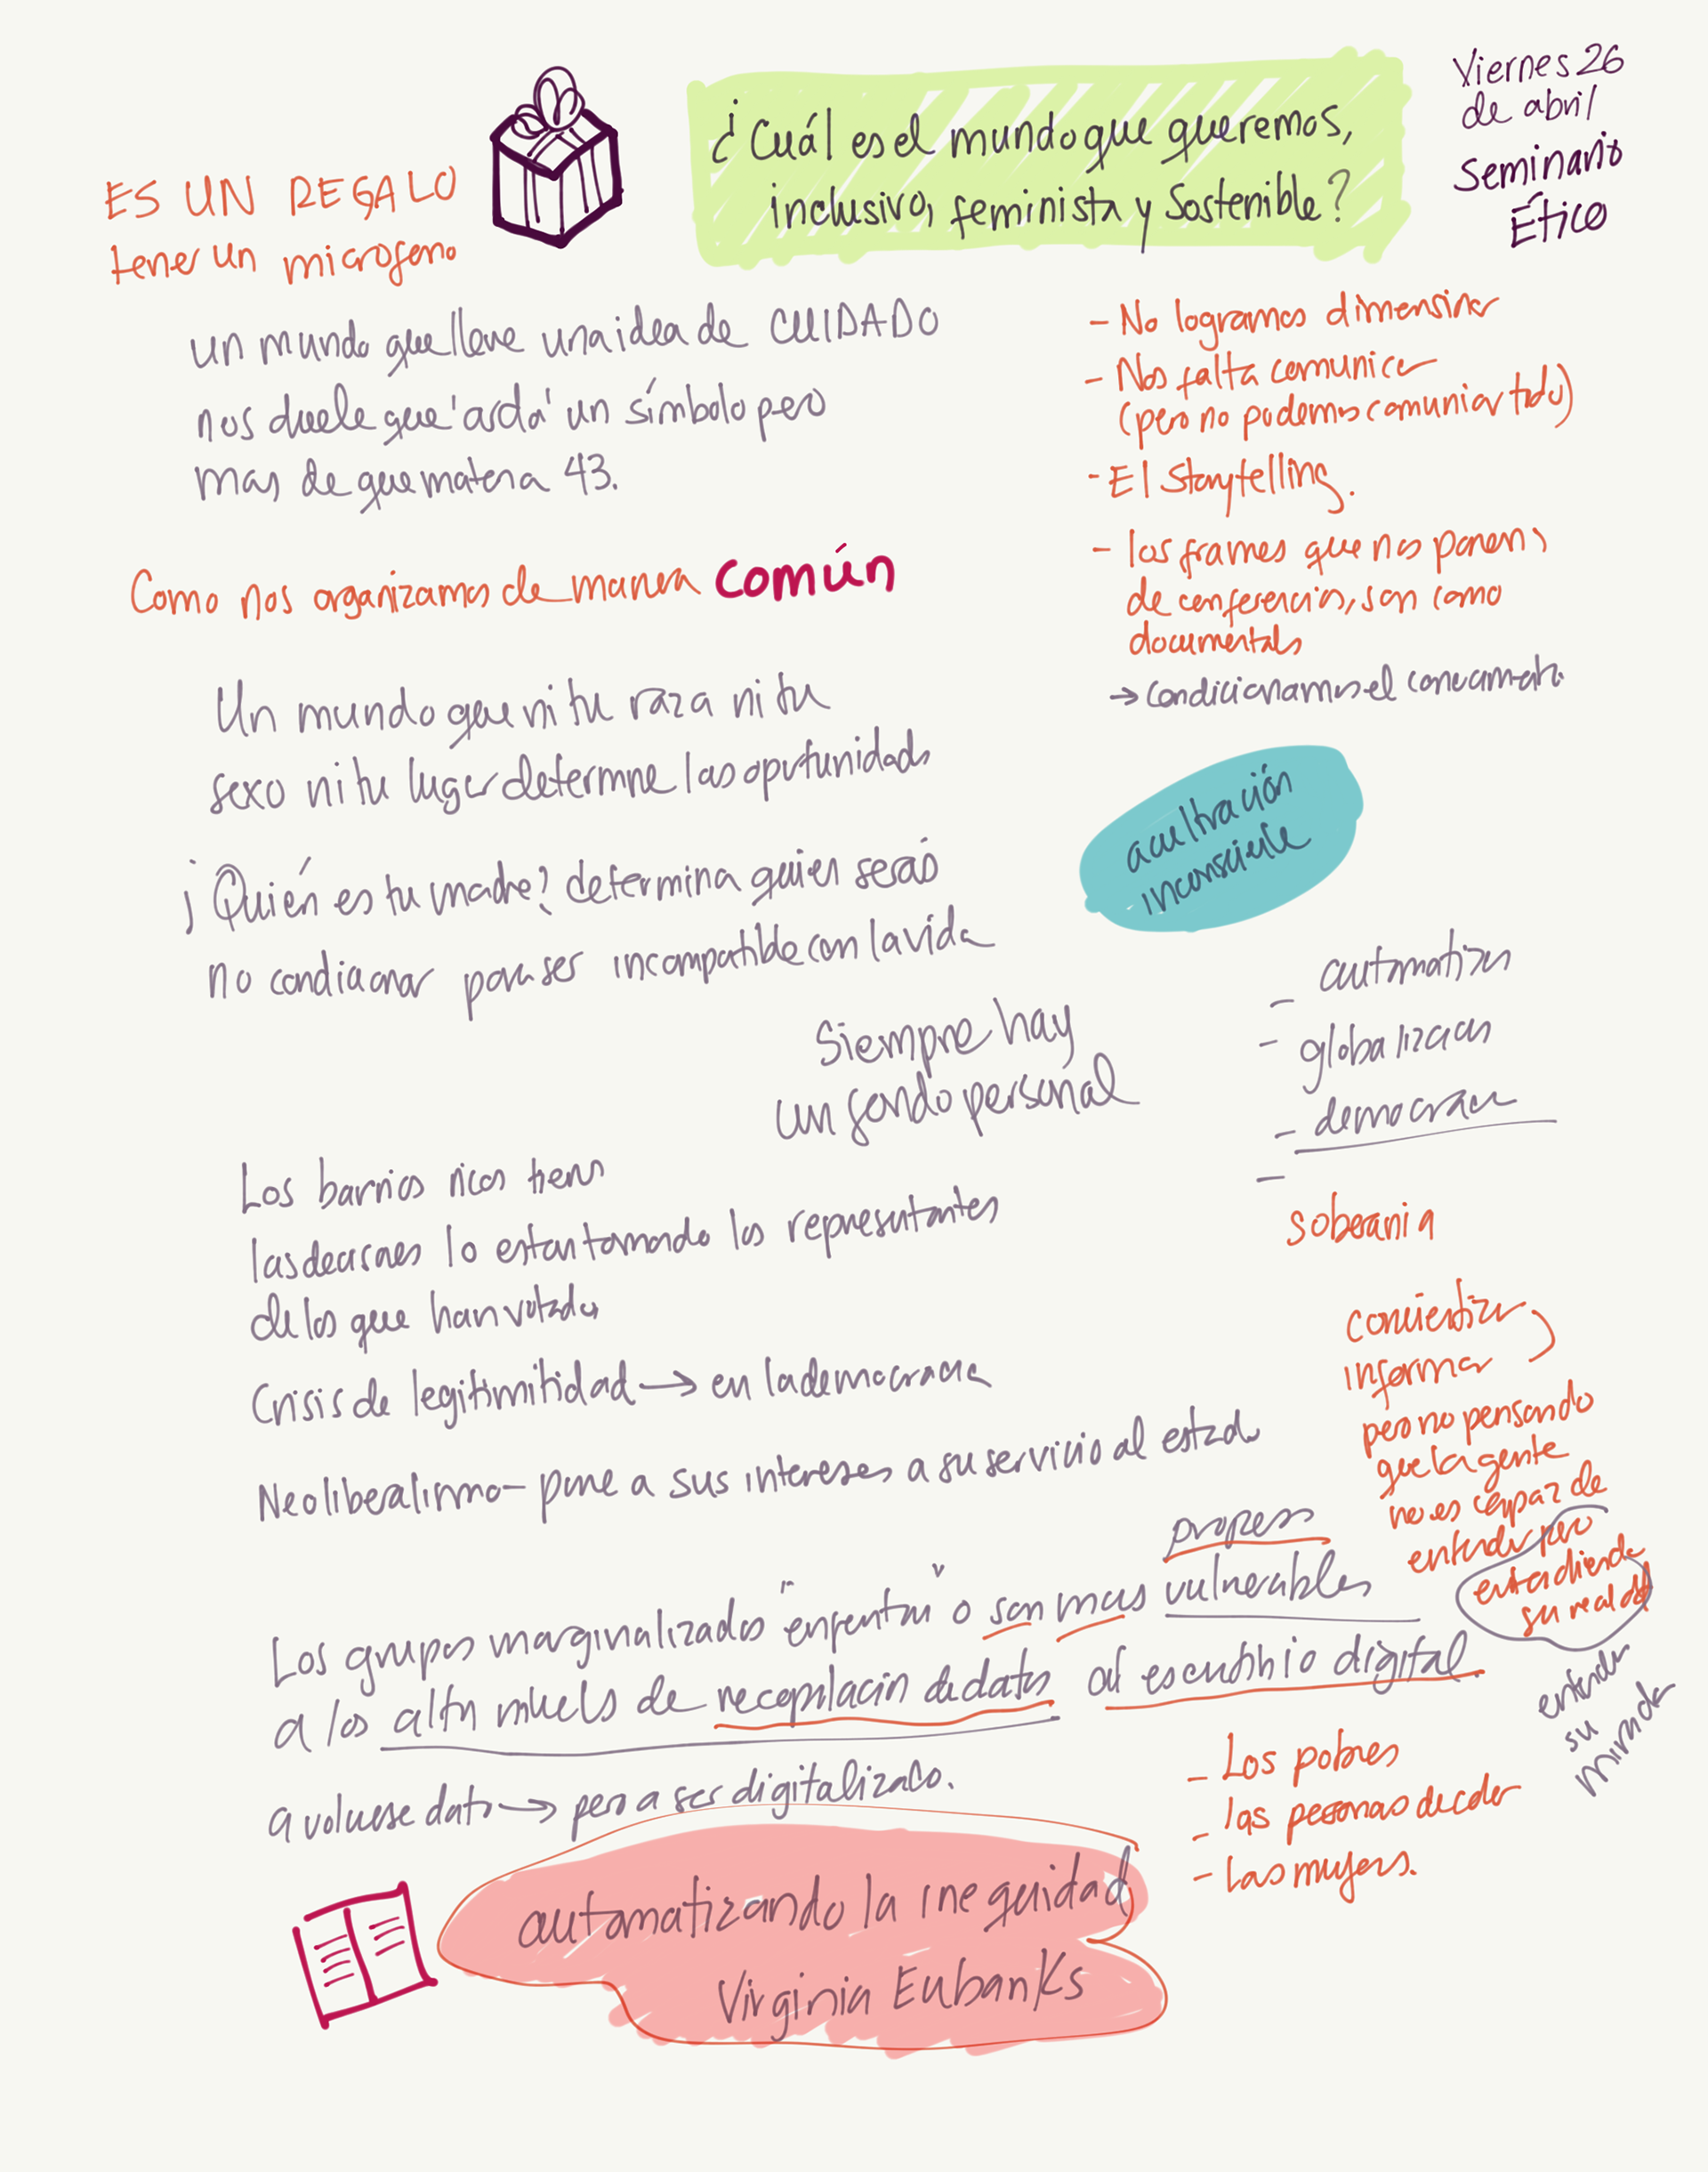 ¿Cuál es el mundo que queremos,
inclusivo, feminista y sostenible?
Viernes 26
de abril
seminario
Ético
ES UN REGALO
tener un microfono
un mundo que lleve una idea de CUIDADO
nos duele que 'arda' un símbolo pero
mas de que maten a 43.
Como nos organizamos de manera común
Un mundo que ni tu raza ni tu
sexo ni tu lugar determine las oportunidads
¡Quién es tu madre? determina quien serás
no condicionar para ser incompatible con la vida
Siempre hay
un fondo personal
- No logramos dimensinar
- Nos falta comunicar
(pero no podemos comunicar todo)
- El storytelling.
- los frames que nos ponen,
de conferencias, son como
documentals
→ condicionamos el
acultración
inconsciente
-
- globalizacion
- democracia
-
soberania
Los barrios ricos tienen
las decisiones lo estan tomando los representantes
de los que han votado
Crisis de legitimitidad → en la democracia
Neoliberalismo - pone a sus intereses a su servicio al estado
concientizar
informar
pero no pensando
que la gente
no es capaz de
entender pero
entendiendo
su realidad
entender
su
mirada
Los grupos marginalizados enfrentan o son mas vulnerables
a los altos nivels de recopilación de datos al escrutinio digital.
a volverse dato → pero a ser digitalizado.
- Los pobres
- las personas de color
- Las mujers.
automatizando la inequidad
Virginia Eubanks